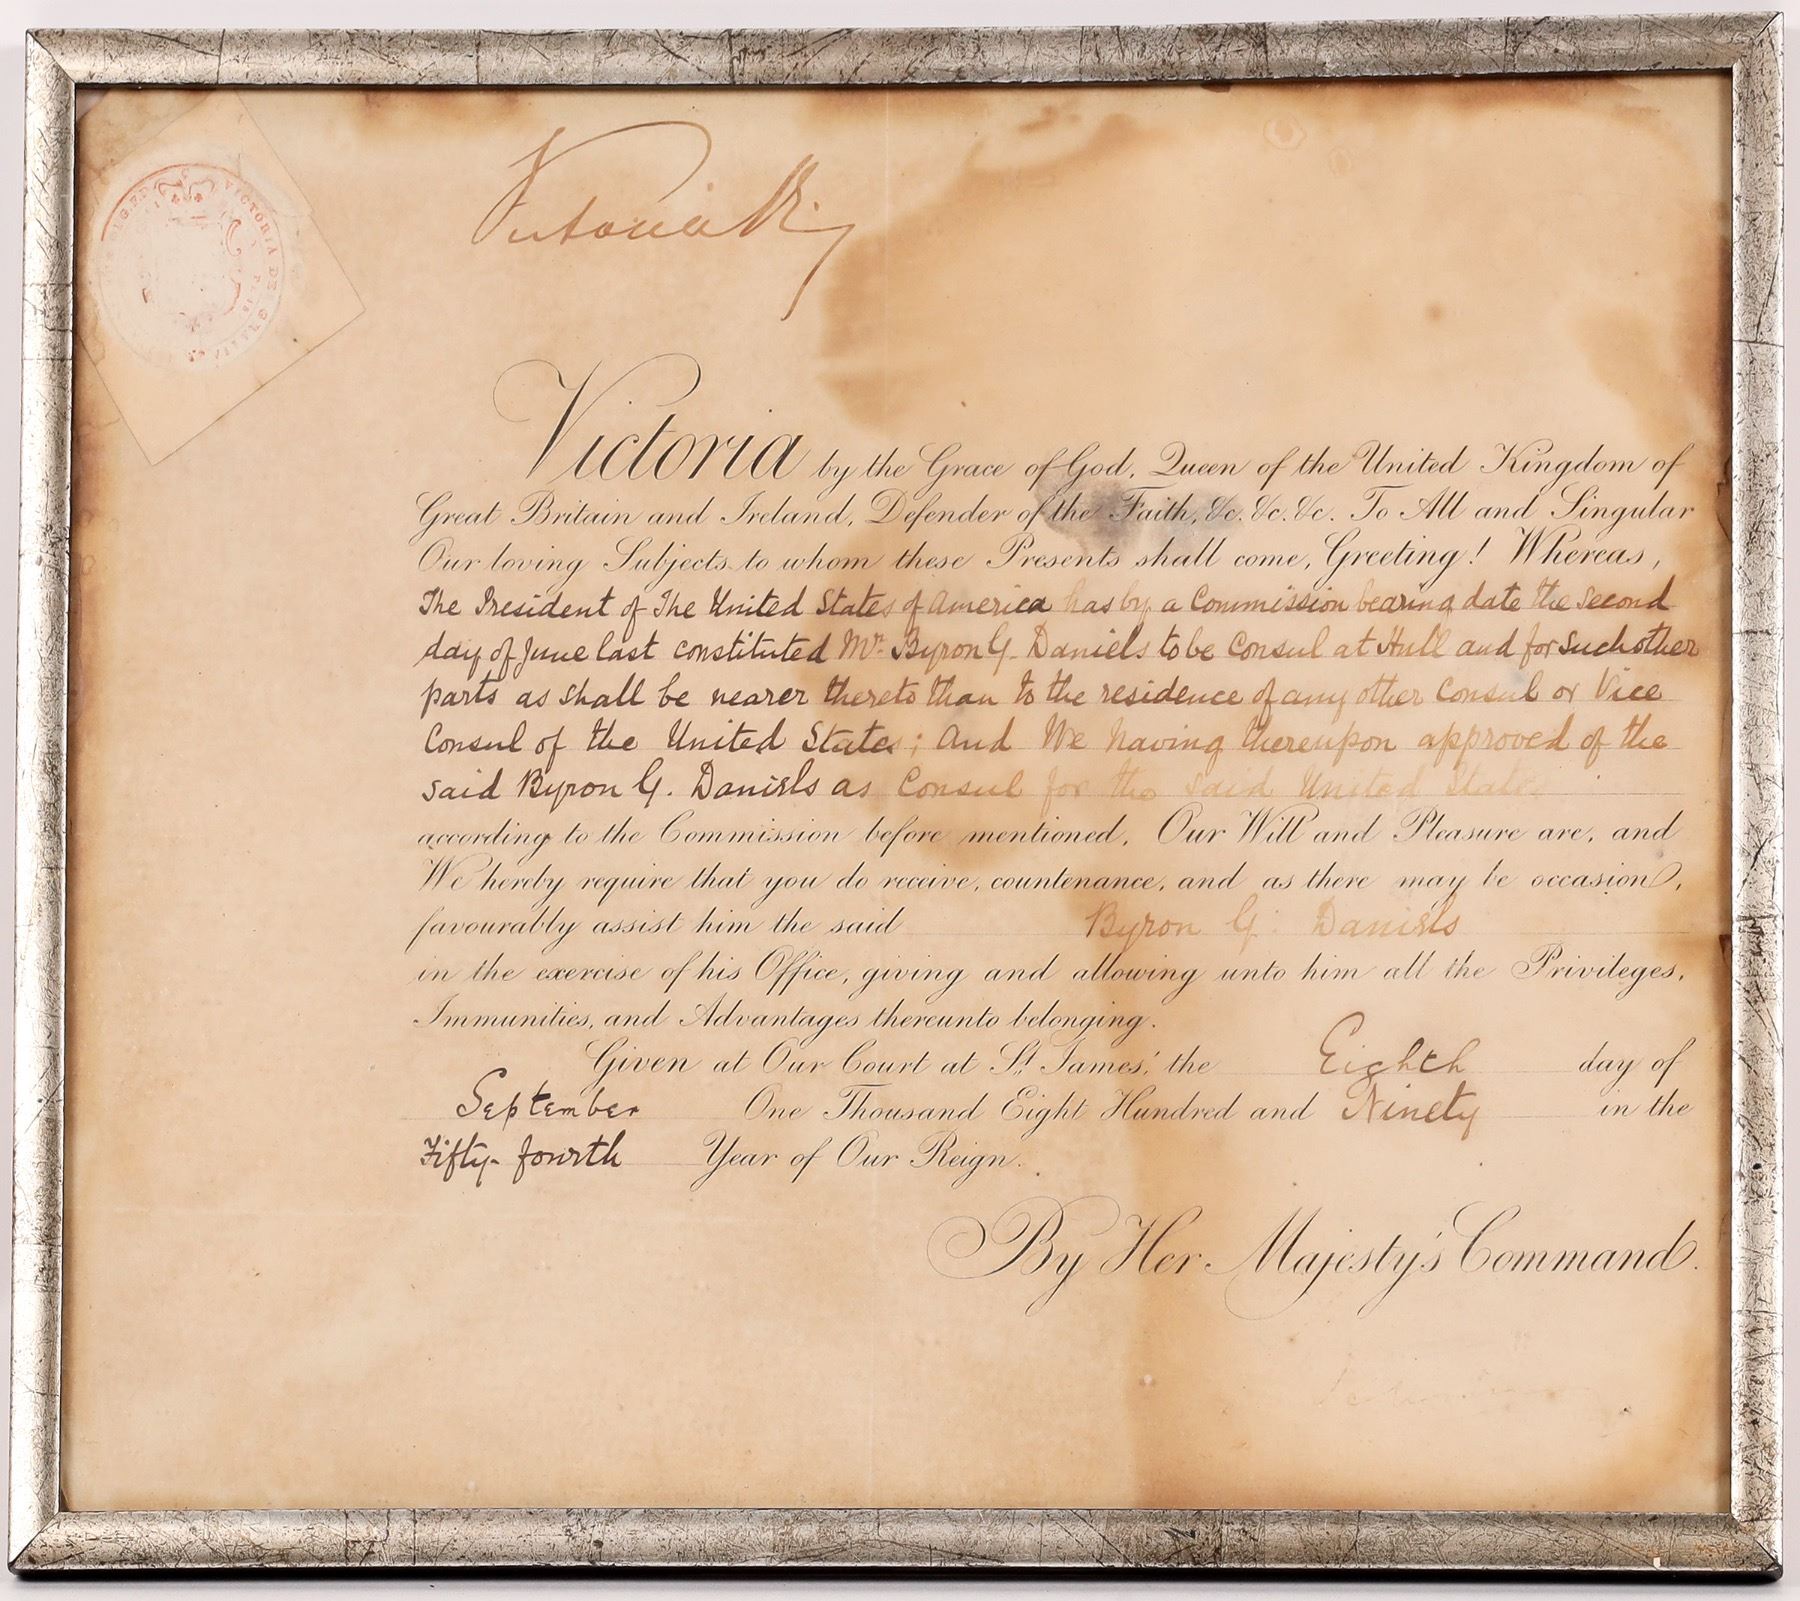 VICTORIA DEI GRATIA
Victoria R.I.
Victoria by the Grace of God, Queen of the United Kingdom of
Great Britain and Ireland, Defender of the Faith, &c. &c. &c. To All and Singular
Our loving Subjects to whom these Presents shall come, Greeting! Whereas,
The President of The United States of America has by a Commission bearing date the second
day of June last constituted Mr. Byron G. Daniels to be Consul at Hull and for such other
parts as shall be nearer thereto than to the residence of any other Consul or Vice
Consul of the United States; And We having thereupon approved of the
said Byron G. Daniels as Consul for the said United States
according to the Commission before mentioned, Our Will and Pleasure are, and
We hereby require that you do receive, countenance, and as there may be occasion,
favourably assist him the said Byron G. Daniels
in the exercise of his Office, giving and allowing unto him all the Privileges,
Immunities, and Advantages thereunto belonging.
Given at Our Court at St. James', the Eighth day of
September One Thousand Eight Hundred and Ninety in the
Fifty-fourth Year of Our Reign.
By Her Majesty's Command.